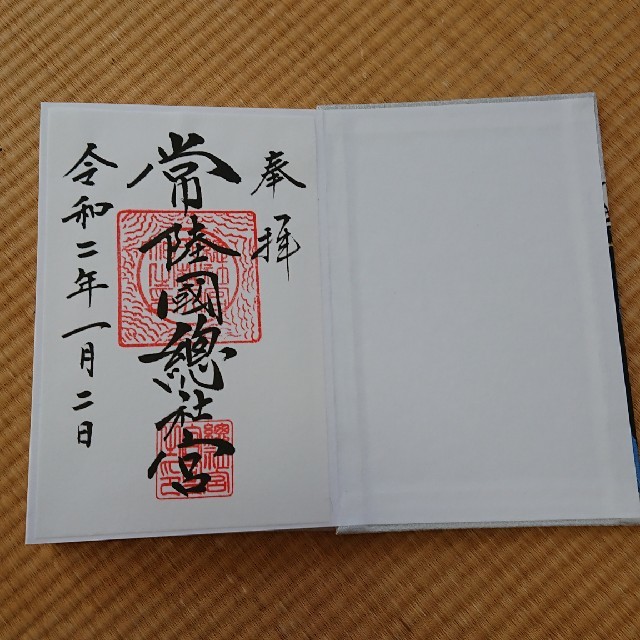 奉拝
常陸國總社宮
令和二年一月二日